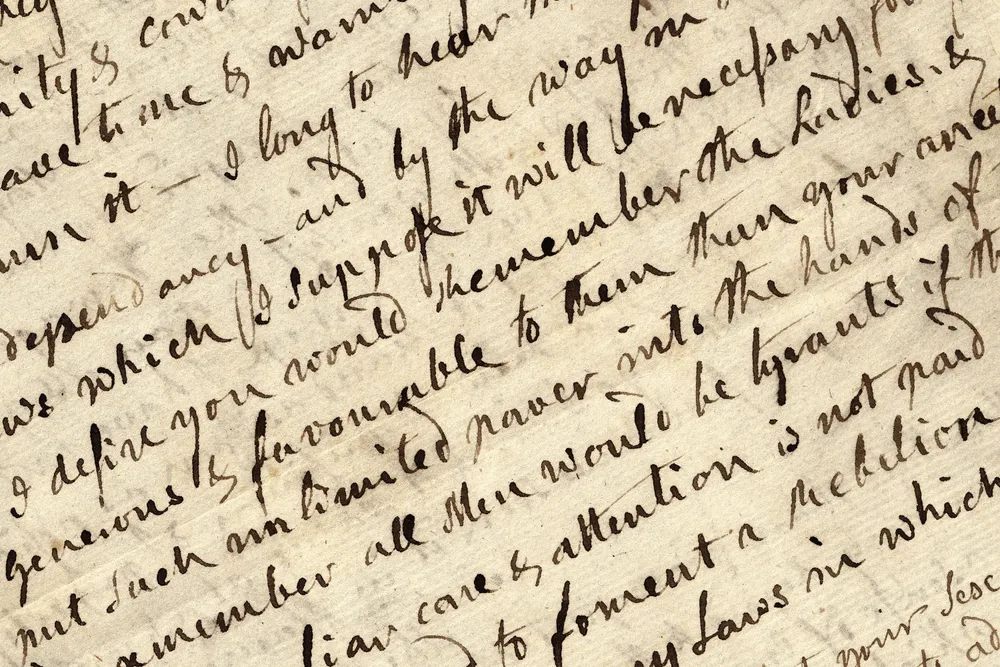 & cow
ave time & warm
it — I long to hear
dependancy — and by the way in
ws which I suppose it will be necessary for
I desire you would Remember the Ladies, &
generous & favourable to them than your ancest
put such unlimited power into the hands of
emember all Men would be tyrants if th
liar care & attention is not paid
to foment a Rebelion
ny Laws in which
your Sex